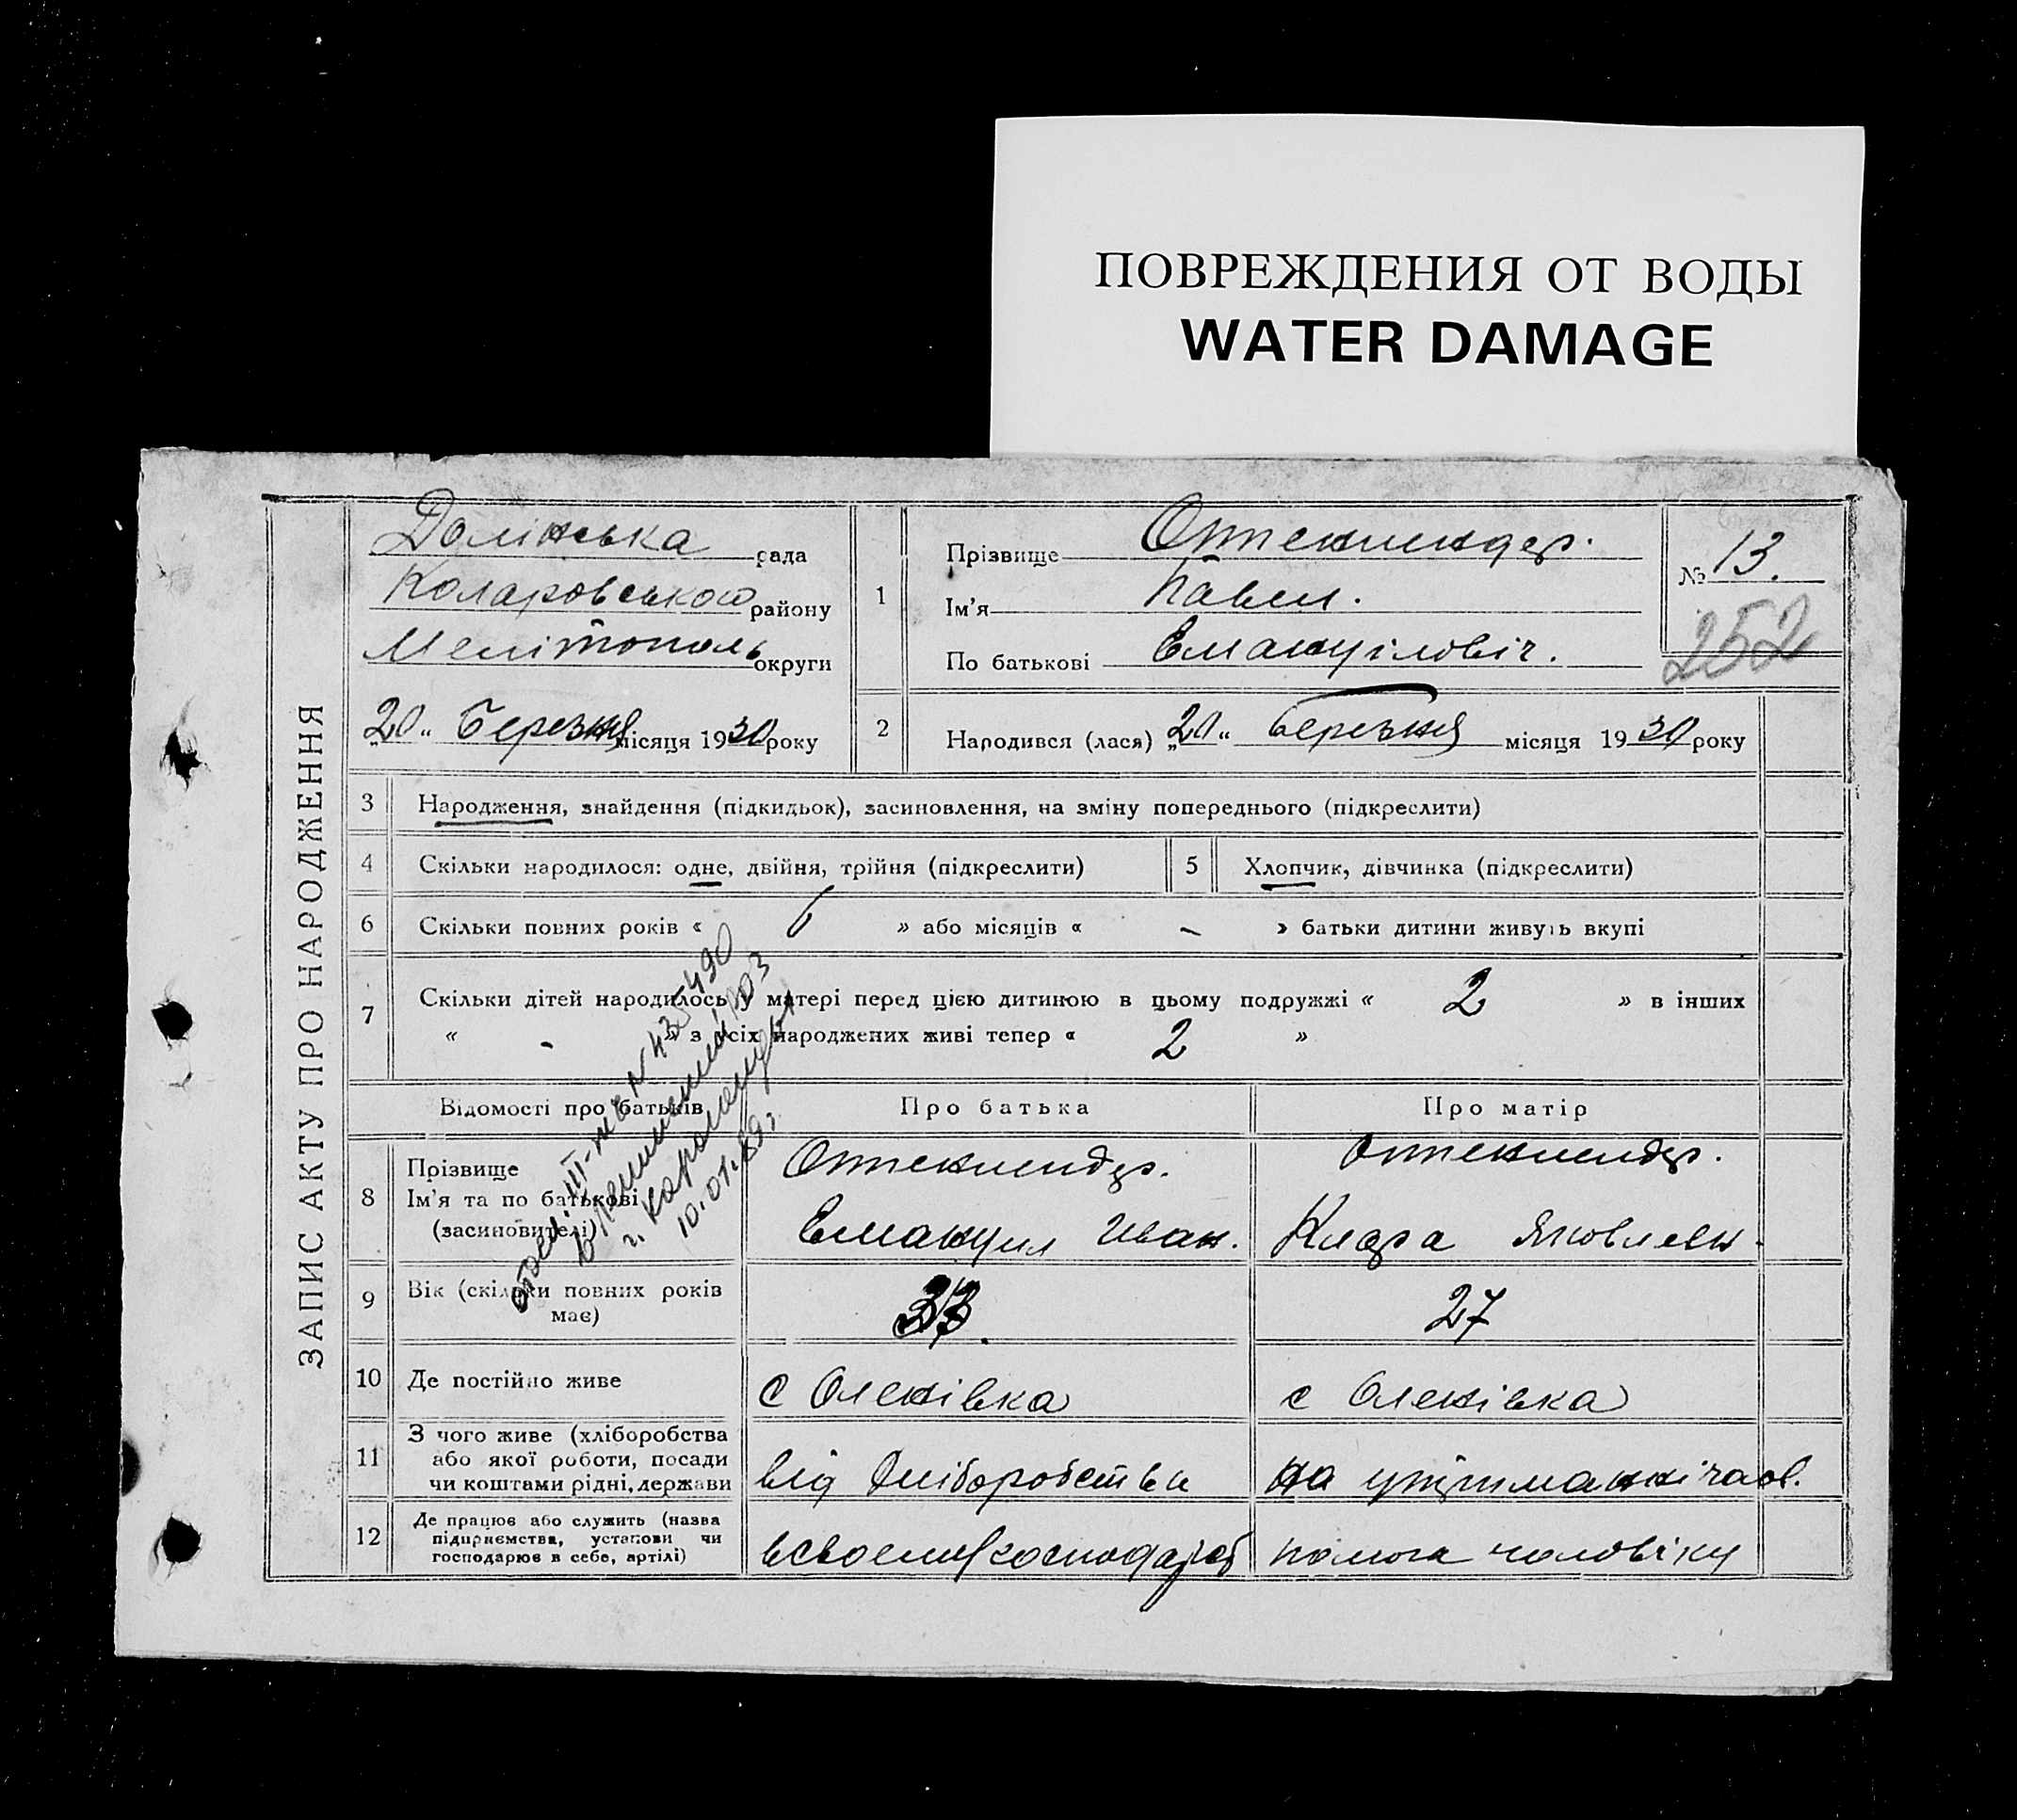 ПОВРЕЖДЕНИЯ ОТ ВОДЫ
WATER DAMAGE
ЗАПИС АКТУ ПРО НАРОДЖЕННЯ
Долінська рада
Коларовського району
Мелітополь округи
„20“ Березня місяця 1930 року
1
Прізвище Оттенклендер.
Ім'я Павел.
По батькові Емануіловіч.
№ 13.
252
2 Народився (лася) „20“ Березня місяця 1930 року
3 Народження, знайдення (підкидьок), засиновлення, на зміну попереднього (підкреслити)
4 Скільки народилося: одне, двійня, трійня (підкреслити) 5 Хлопчик, дівчинка (підкреслити)
6 Скільки повних років « 6 » або місяців « - » батьки дитини живуть вкупі
7 Скільки дітей народилось у матері перед цією дитиною в цьому подружжі « 2 » в інших
« - » з усіх народжених живі тепер « 2 »
III-
N 435490
г. Караганды
10.01.89г
Відомості про батьків Про батька Про матір
8 Прізвище
Ім'я та по батькові
(засиновителі)
Оттенклендер. Оттенклендер.
Емануил Иван. Клара Яковлевн.
9 Вік (скільки повних років
має) 33. 27
10 Де постійно живе с Оленівка с Оленівка
11 З чого живе (хліборобства
або якої роботи, посади
чи коштами рідні, держави
від Хліборобства на утриманні чолов.
12 Де працює або служить (назва
підприємства, установи чи
господарює в себе, артілі)
в своему господарст помога чоловіку